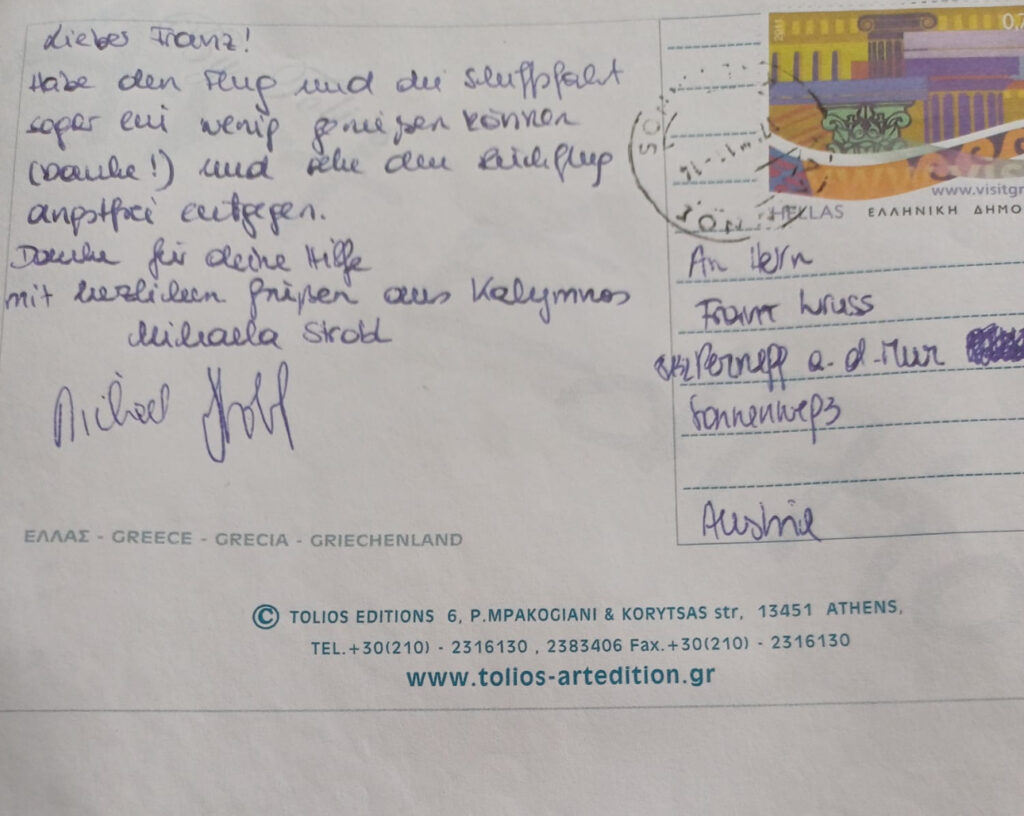 Liebes Franz!
Habe den Flug und die Schiffahrt
sogar ein wenig genießen können
(Danke!) und sehe dem Rückflug
angstfrei entgegen.
Danke für deine Hilfe
mit herzlichen Grüßen aus Kalymnos
Mihaela Strobl
Michael Strobl
2011
0,7
www.visitgr
HELLAS ΕΛΛΗΝΙΚΗ ΔΗΜΟ
An Herrn
Franz Wruss
Pernegg a-d-Mur
Sonnenweg 3
Austria
ΕΛΛΑΣ - GREECE - GRECIA - GRIECHENLAND
© TOLIOS EDITIONS 6, P.MPAKOGIANI & KORYTSAS str, 13451 ATHENS,
TEL.+30(210) - 2316130 , 2383406 Fax.+30(210) - 2316130
www.tolios-artedition.gr